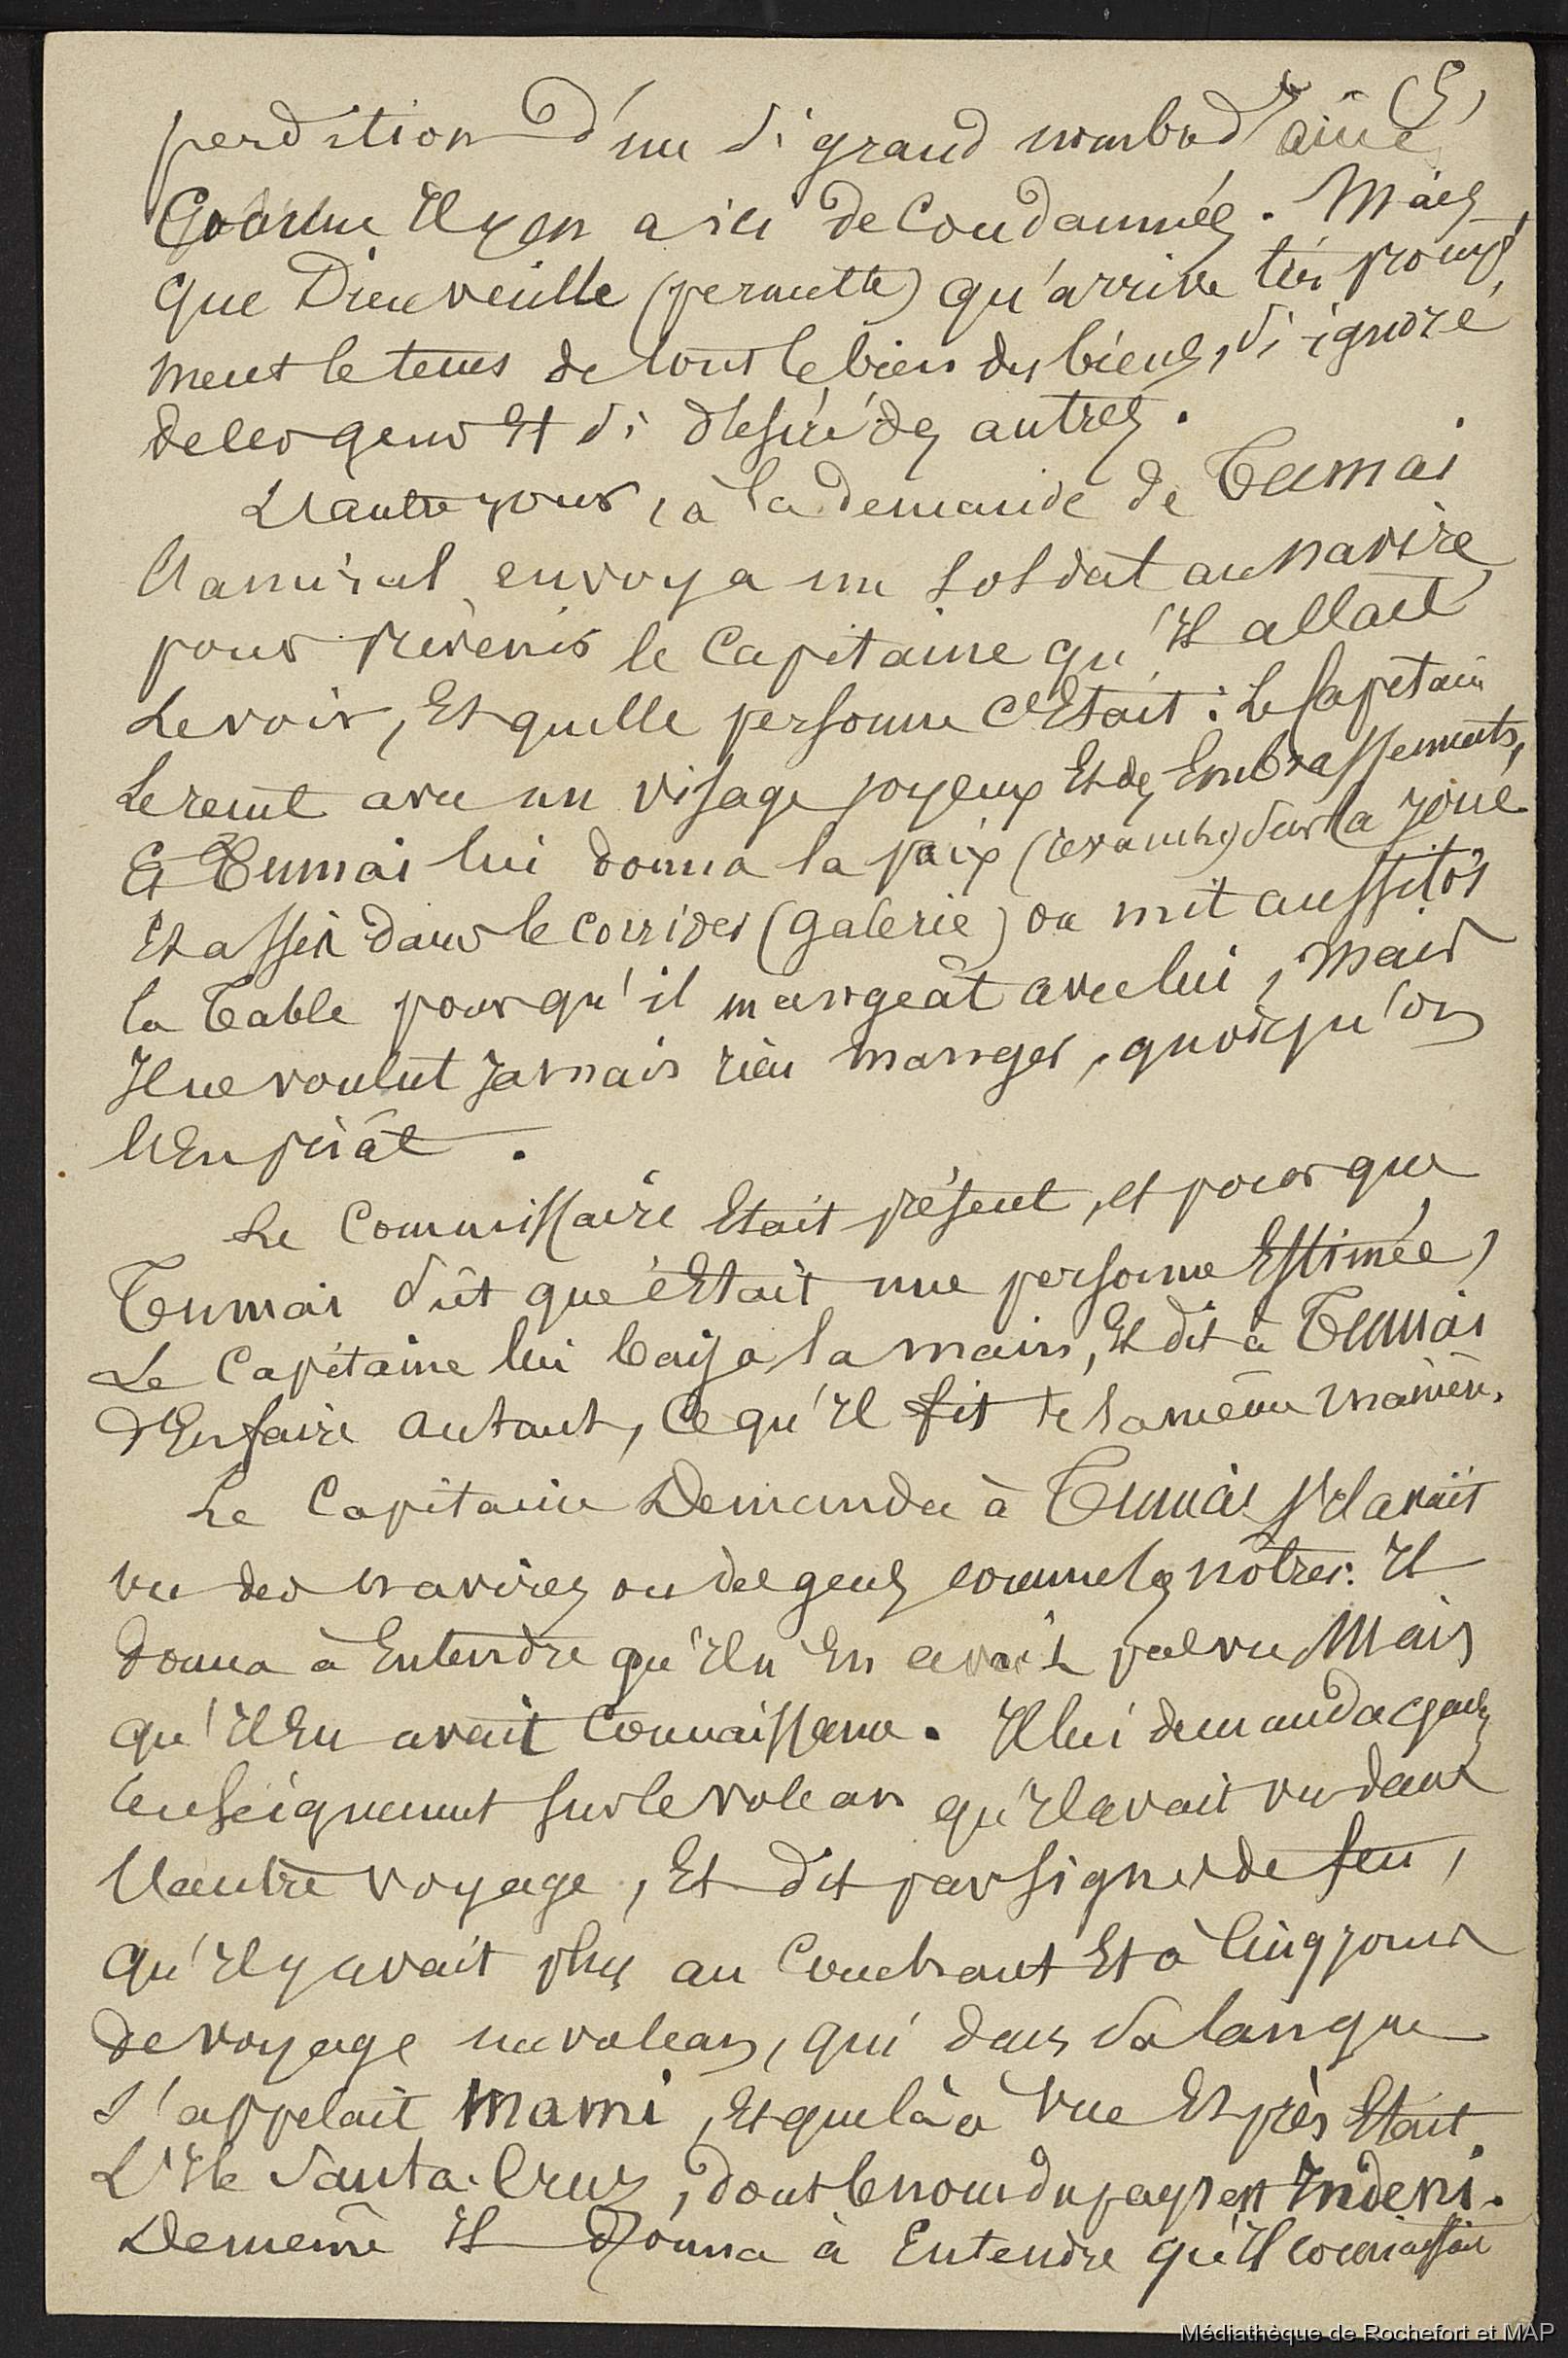 (5)
perdition d'un si grand nombre d'âme
Comme Il y en a ici de Condamnées. Mais
que Dieu veuille (permette) qu'arrive très prompte
ment le tems de tout le bien des biens, si ignoré
de ces gens Et si désiré des autres.
L'autre jour, à la demande de Tumai
l'amiral envoya un soldat au navire,
pour prévenir le Capitaine qu'Il allait
Le voir, Et quelle personne c'Etait : Le Capitaine
Le reçut avec un visage joyeux Et des Embrassements,
Et Tumai lui donna la paix (revanche) sur la joue
Et assis dans le corridor (galerie) on mit aussitôt
la Table pour qu'il mangeât avec lui, mais
Il ne voulut Jamais rien manger, quoiqu'on
l'En priât.
Le Commissaire Etait présent, et pour que
Tumai sût que c'Etait une personne Estimée,
Le Capitaine lui baisa la main, Et dit à Tumai
d'En faire autant, Ce qu'Il fit de la même manière.
Le Capitaine Demanda à Tumai s'Il avait
vu des navires ou des gens comme les nôtres. Il
donna à Entendre qu'Il n'En avait pas vu Mais
qu'Il En avait Connaissance. Il lui demanda quels
renseignement sur le volcan qu'Il avait vu dans
l'autre voyage, Et dit par signes de feu,
qu'Il y avait plus au Couchant Et à Cinq jours
de voyage un volcan, qui dans sa langue
s'appelait Mami, Et que là à vue Et près Etait
L'Ile Santa-Cruz, dont le nom du pays est Indeni.
De même Il donna à Entendre qu'Il connaissait
Médiathèque de Rochefort et MAP